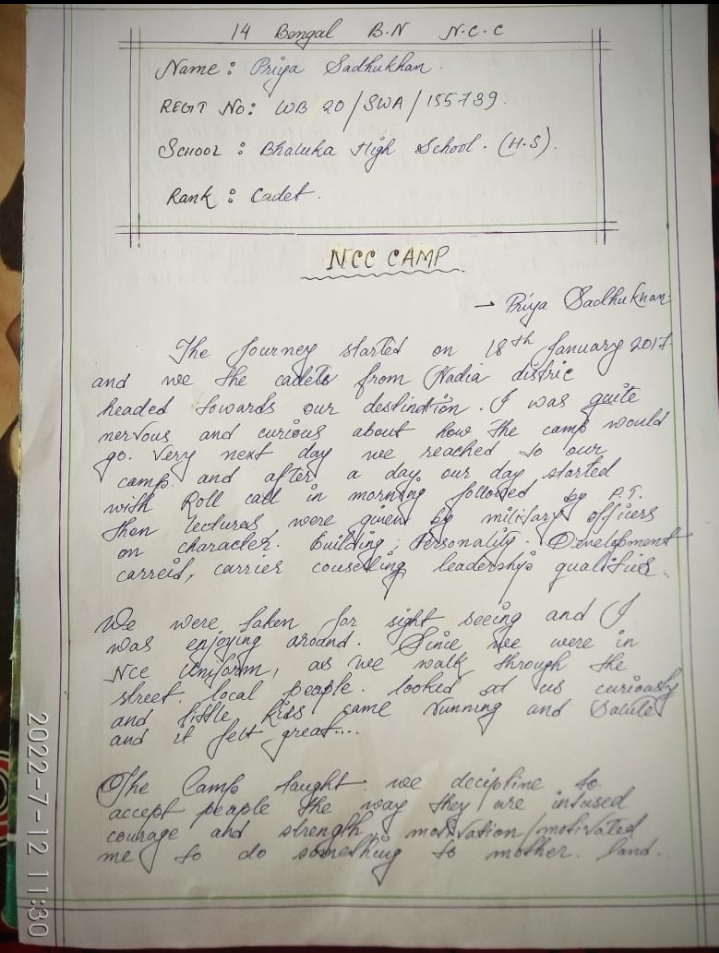 14 Bengal B.N N.C.C
Name : Priya Sadhukhan.
REGT No: WB 20/SWA/155739.
SCHOOL : Bhaluka High School. (H.S).
Rank : Cadet.
NCC CAMP
→ Priya Sadhukhan
The Journey started on 18th January 2017
and we the cadets from Nadia distric
headed towards our destindtion. I was quite
nervous and curious about how the camp would
go. Very next day we reached to our
camp and after a day our day started
with Roll call in morning followed by P.T.
then lectures were given by military officers
on character. Building; Personality. Development
carreid, carrier counselling leadership qualities.
We were taken for sight seeing and I
was enjoying around. Since we were in
NCC Uniform, as we walk through the
street. local peaple. looked at us curiously
and little kiss came running and Salute
and it felt great....
The Camp taught we decipline to
accept peaple the way they are infused
courage and strength motivation/motivated
me to do something to mother. land.
2022-7-12 11:30